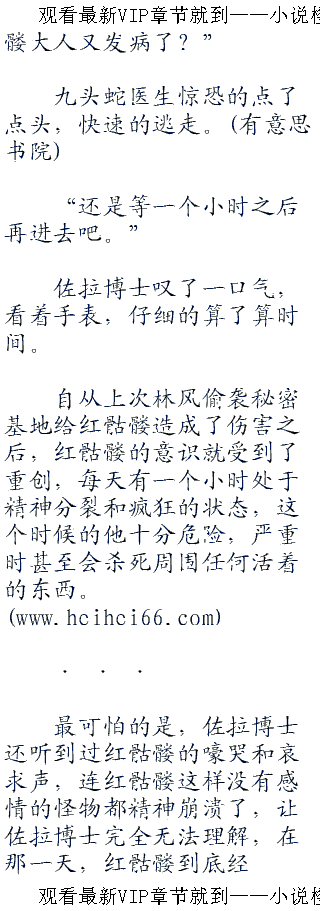 观看最新VIP章节就到——小说
髅大人又发病了？”
九头蛇医生惊恐的点了
点头，快速的逃走。(有意思
书院)
“还是等一个小时之后
再进去吧。”
佐拉博士叹了一口气，
看着手表，仔细的算了算时
间。
自从上次林风偷袭秘密
基地给红骷髅造成了伤害之
后，红骷髅的意识就受到了
重创，每天有一个小时处于
精神分裂和疯狂的状态，这
个时候的他十分危险，严重
时甚至会杀死周围任何活着
的东西。
(www.hcihci66.com)
. . .
最可怕的是，佐拉博士
还听到过红骷髅的嚎哭和哀
求声，连红骷髅这样没有感
情的怪物都精神崩溃了，让
佐拉博士完全无法理解，在
那一天，红骷髅到底经
观看最新VIP章节就到——小说